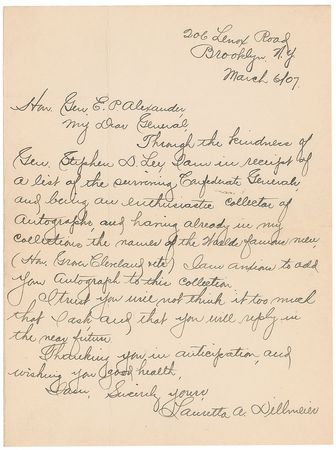 206 Lenox Road
Brooklyn N.Y.
March 6/07.
Hon. Gen. E. P. Alexander,
My Dear General,
Through the kindness of
Gen. Stephen D. Lee, I am in receipt of
a list of the surviving Confederate Generals
and being an enthusiastic collector of
Autographs, and having already in my
collections the names of the World famous men
(Hon. Grover Cleveland etc) I am anxious to add
your Autograph to this collection.
I trust you will not think it too much
that I ask and that you will reply in
the near future.
Thanking you in anticipation, and
wishing you good health,
I am, Sincerely yours
Lauretta A. Dillmeier